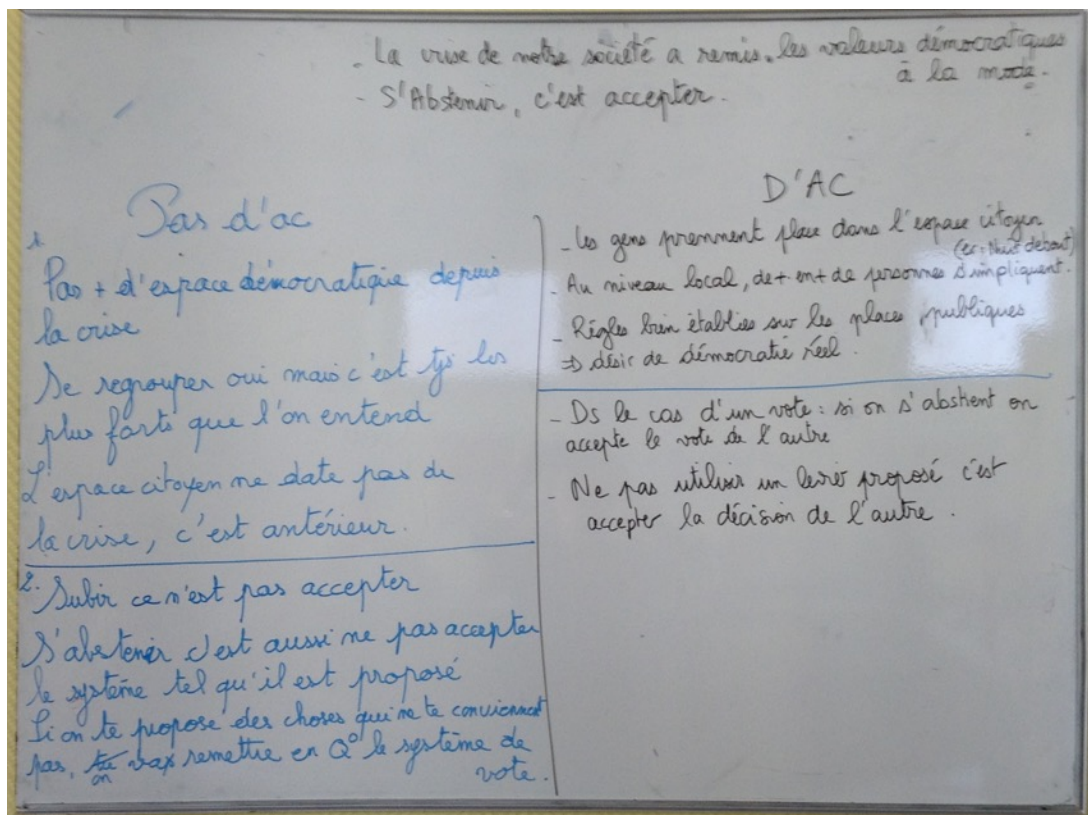 - La crise de notre société a remis les valeurs démocratiques
à la mode.
- S'Abstenir, c'est accepter.
Pas d'ac
1.
Pas + d'espace démocratique depuis
la crise
Se regrouper oui mais c'est tjs les
plus forts que l'on entend
L'espace citoyen ne date pas de
la crise, c'est antérieur.
2. Subir ce n'est pas accepter
S'abstenir c'est aussi ne pas accepter
le système tel qu'il est proposé
Si on te propose des choses qui ne te conviennent
pas, on vas remettre en Q° le système de
vote.
D'AC
- les gens prennent place dans l'espace citoyen
(ex: Nuit debout)
- Au niveau local, de + en + de personnes s'impliquent.
- Règles bien établies sur les places publiques
⇒ désir de démocratie réel.
- Ds le cas d'un vote : si on s'abstient on
accepte le vote de l'autre
- Ne pas utiliser un levier proposé c'est
accepter la décision de l'autre.